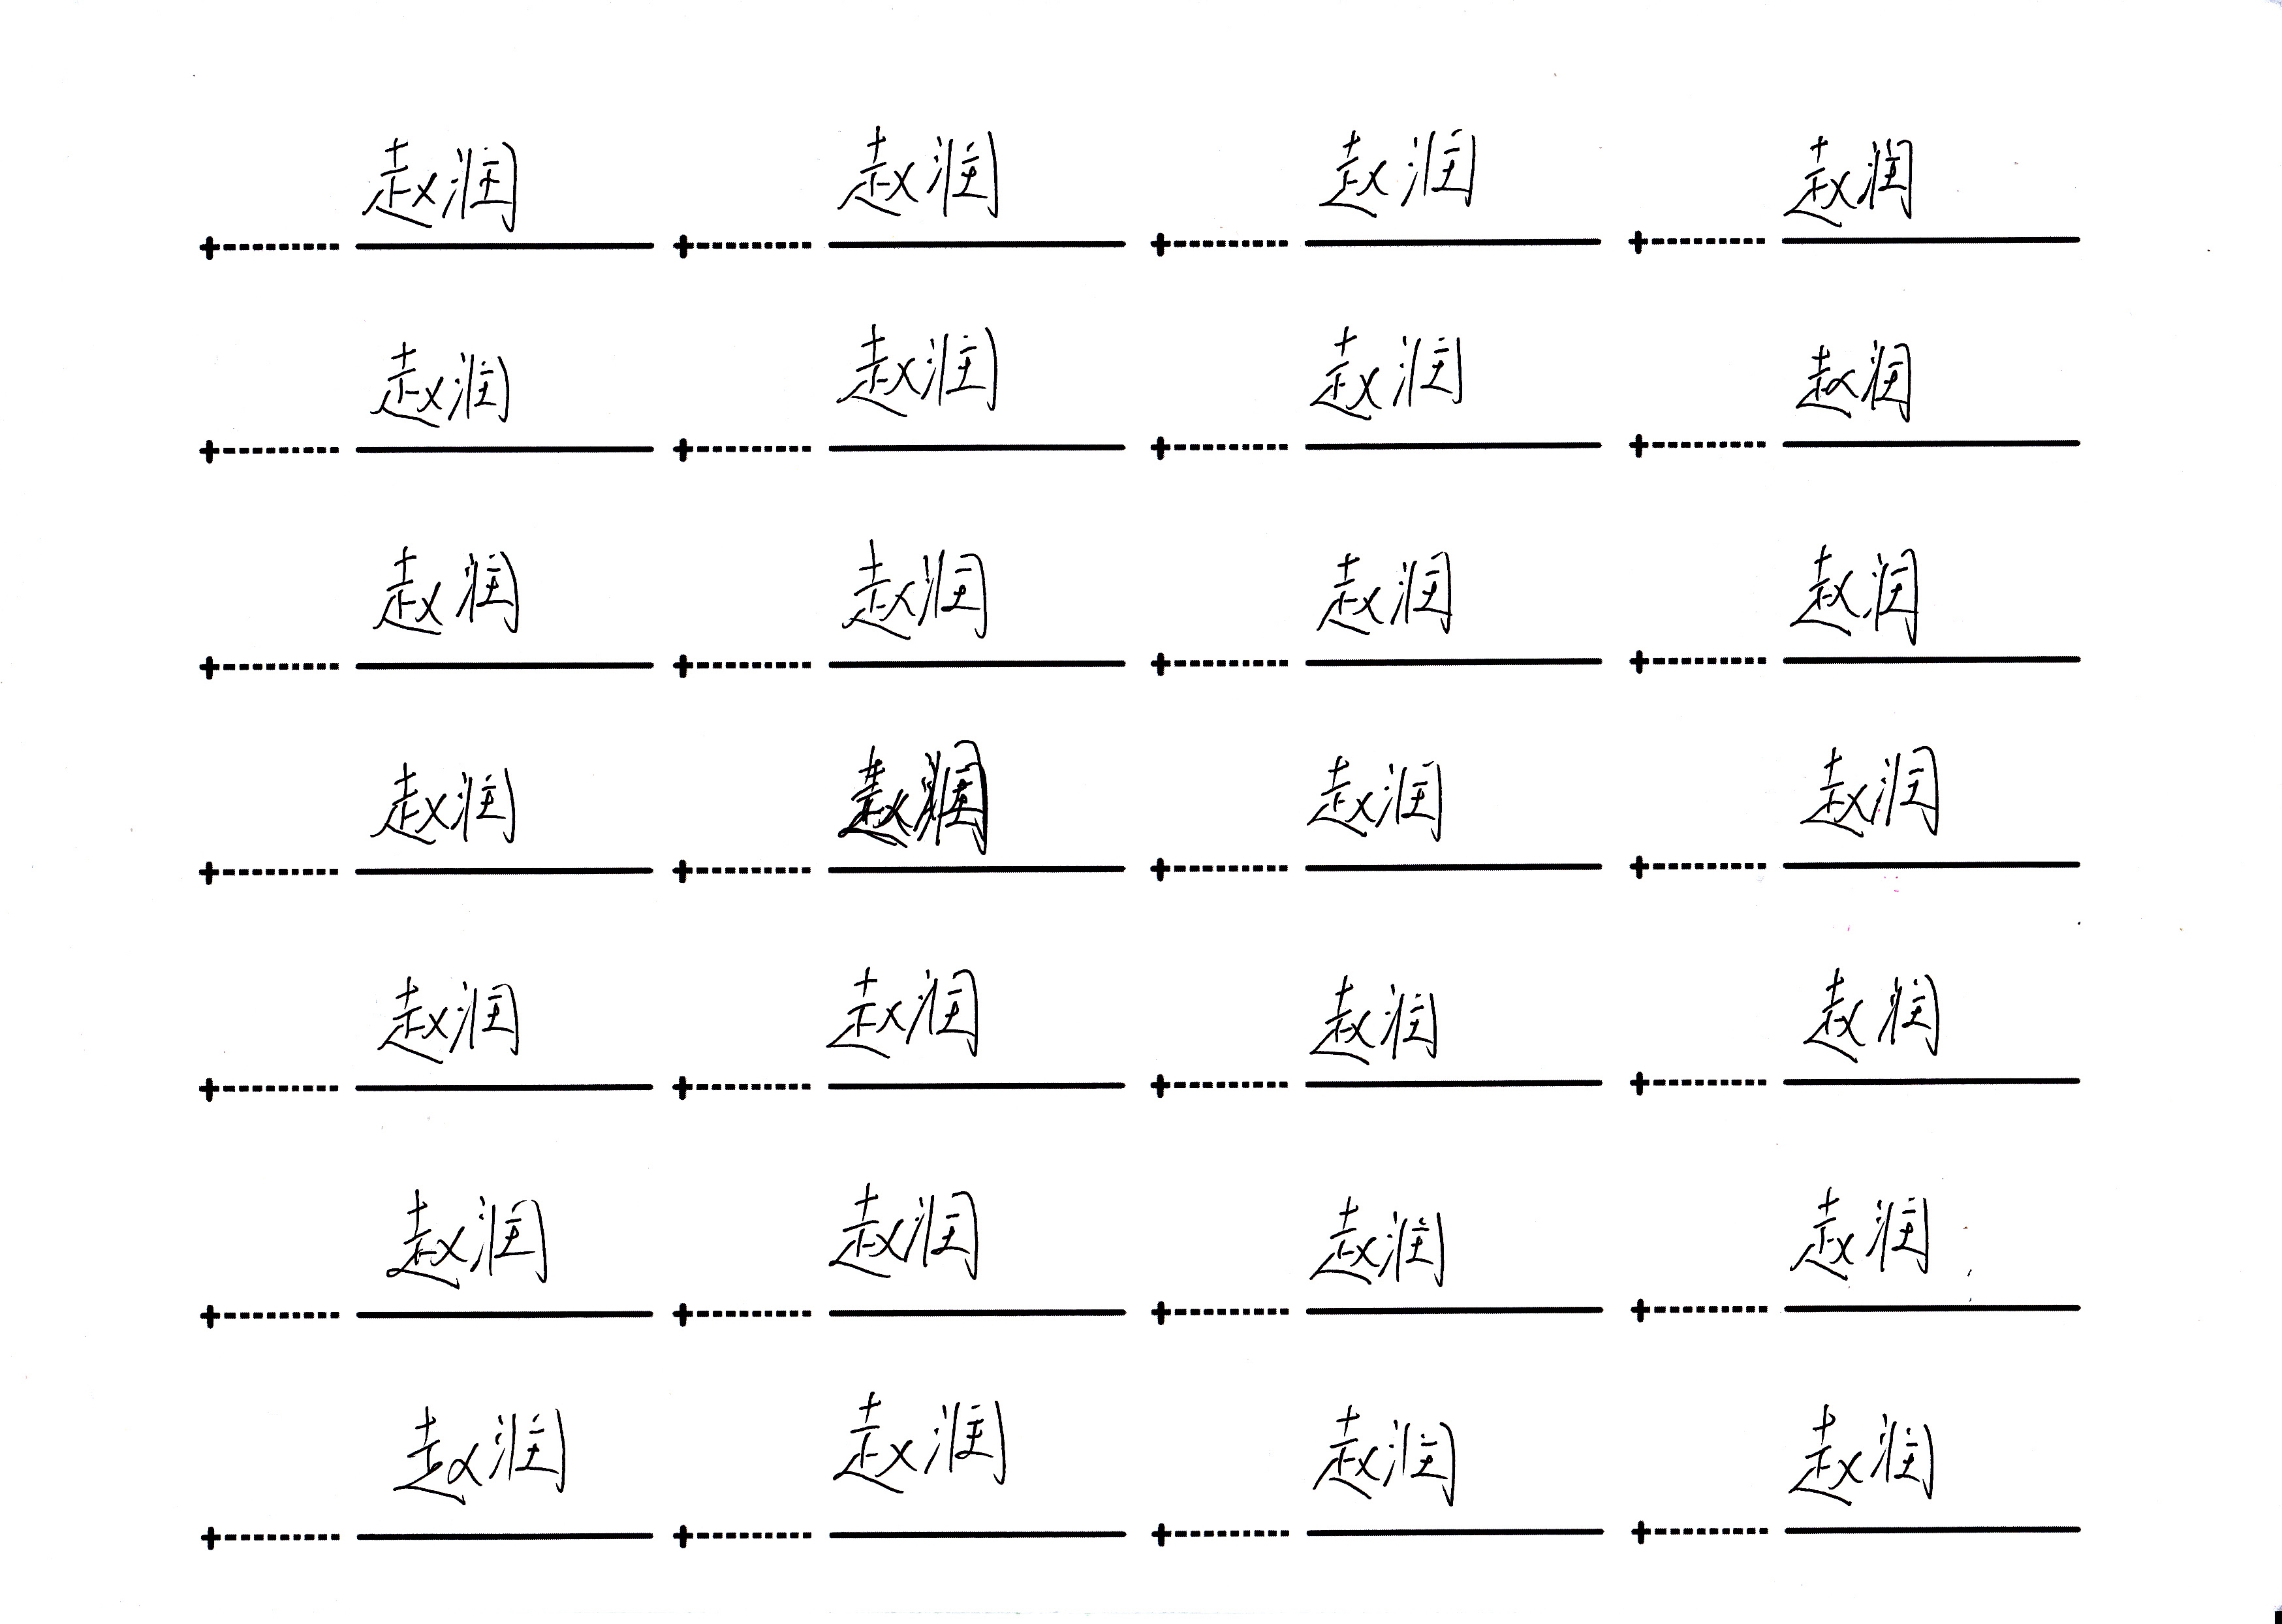 赵润 赵润 赵润 赵润
赵润 赵润 赵润 赵润
赵润 赵润 赵润 赵润
赵润 赵润 赵润 赵润
赵润 赵润 赵润 赵润
赵润 赵润 赵润 赵润
赵润 赵润 赵润 赵润